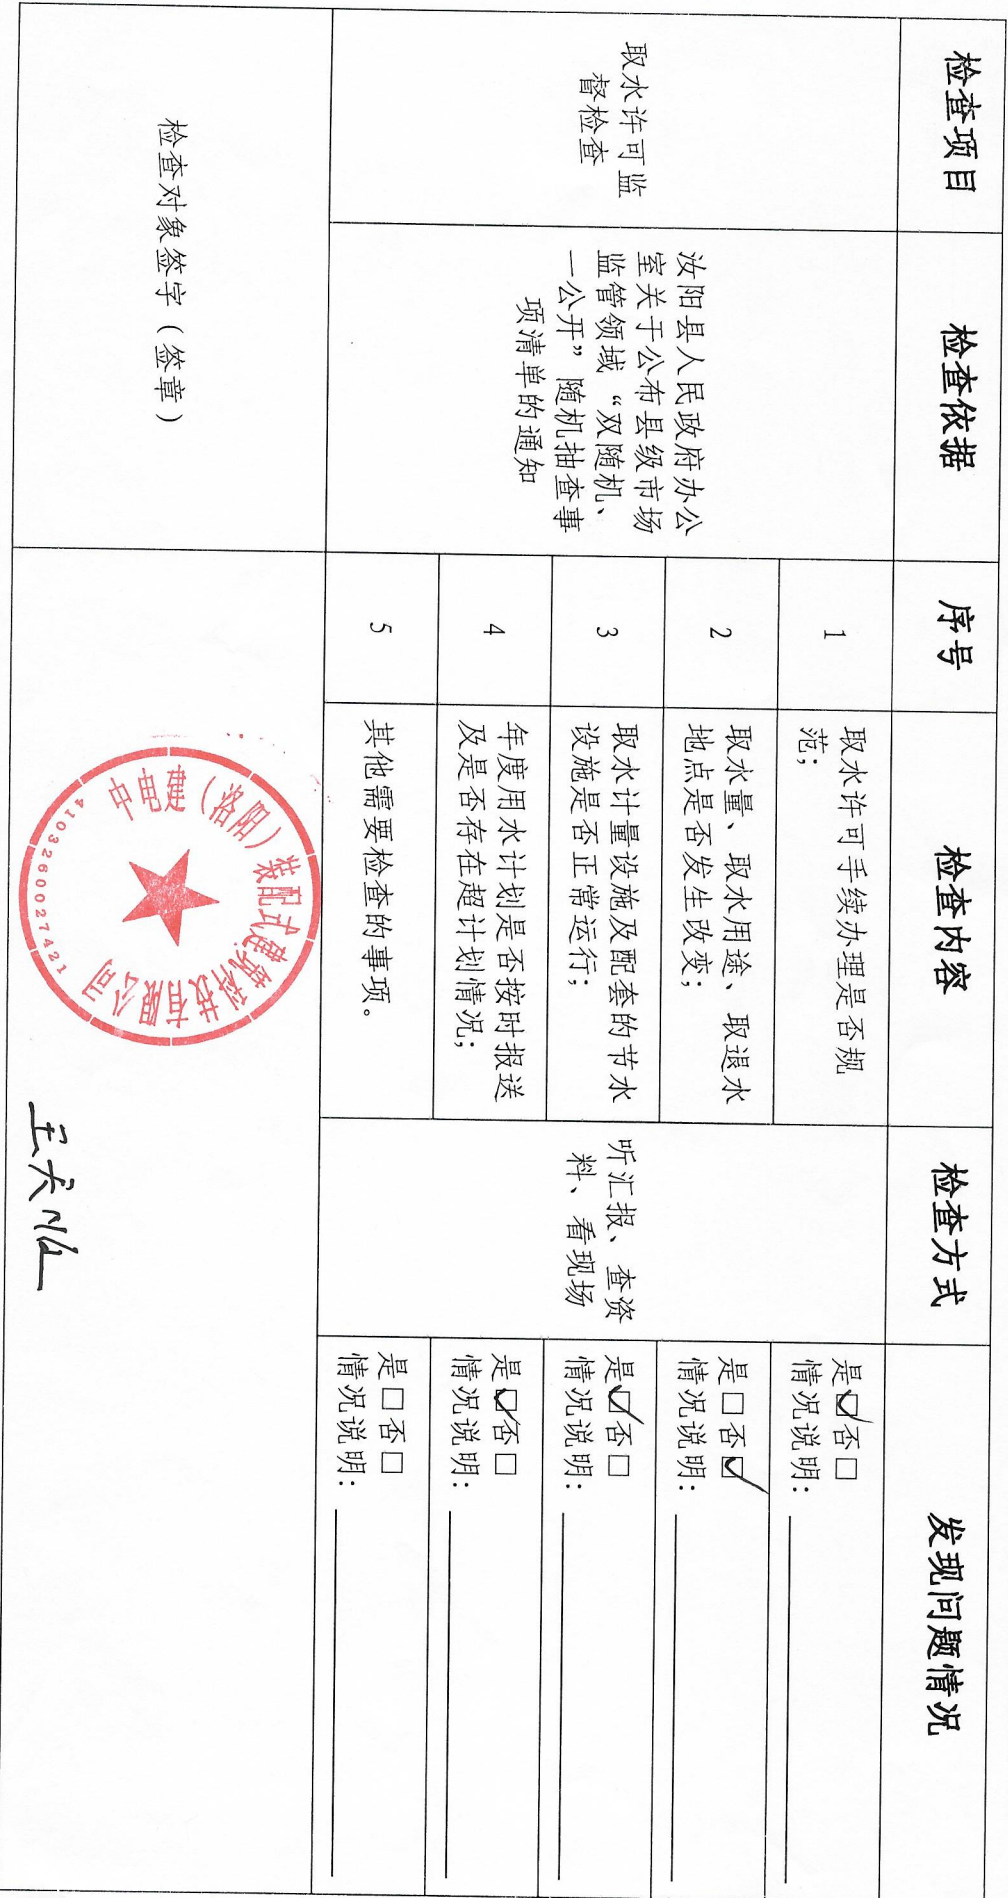 检查项目
检查依据
序号
检查内容
检查方式
发现问题情况
取水许可监
督检查
汝阳县人民政府办公
室关于公布县级市场
监管领域“双随机、
一公开”随机抽查事
项清单的通知
1
取水许可手续办理是否规
范；
听汇报、查资
料、看现场
是☑否□
情况说明：
2
取水量、取水用途、取退水
地点是否发生改变；
是□否☑
情况说明：
3
取水计量设施及配套的节水
设施是否正常运行；
是☑否□
情况说明：
4
年度用水计划是否按时报送
及是否存在超计划情况；
是☑否□
情况说明：
5
其他需要检查的事项。
是□否□
情况说明：
检查对象签字（签章）
中电建（洛阳）装配式建筑科技有限公司
4103260027421